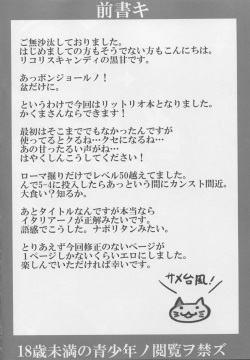 前書キ
ご無沙汰しておりました。
はじめましての方もそうでない方もこんにちは。
リコリスキャンディの黒甘です。
あっボンジョールノ！
盆だけに。
というわけで今回はリットリオ本となりました。
かくまさんならできます！
最初はそこまででもなかったんですが
使ってるとクるね…クセになるね…
あの甘ったるい声がね…
はやくしんこうしてください！
ローマ掘りだけでレベル50越えてました。
んで5-4に投入したらあっという間にカンスト間近。
大食い？知るか。
あとタイトルなんですが本当なら
イタリアーノが正解みたいです。
語感でこうした。ナポリタンみたい。
とりあえず今回修正のないページが
1ページしかないくらいエロにしました。
楽しんでいただければ幸いです。
サメ台風！
18歳未満の青少年ノ閲覧ヲ禁ズ